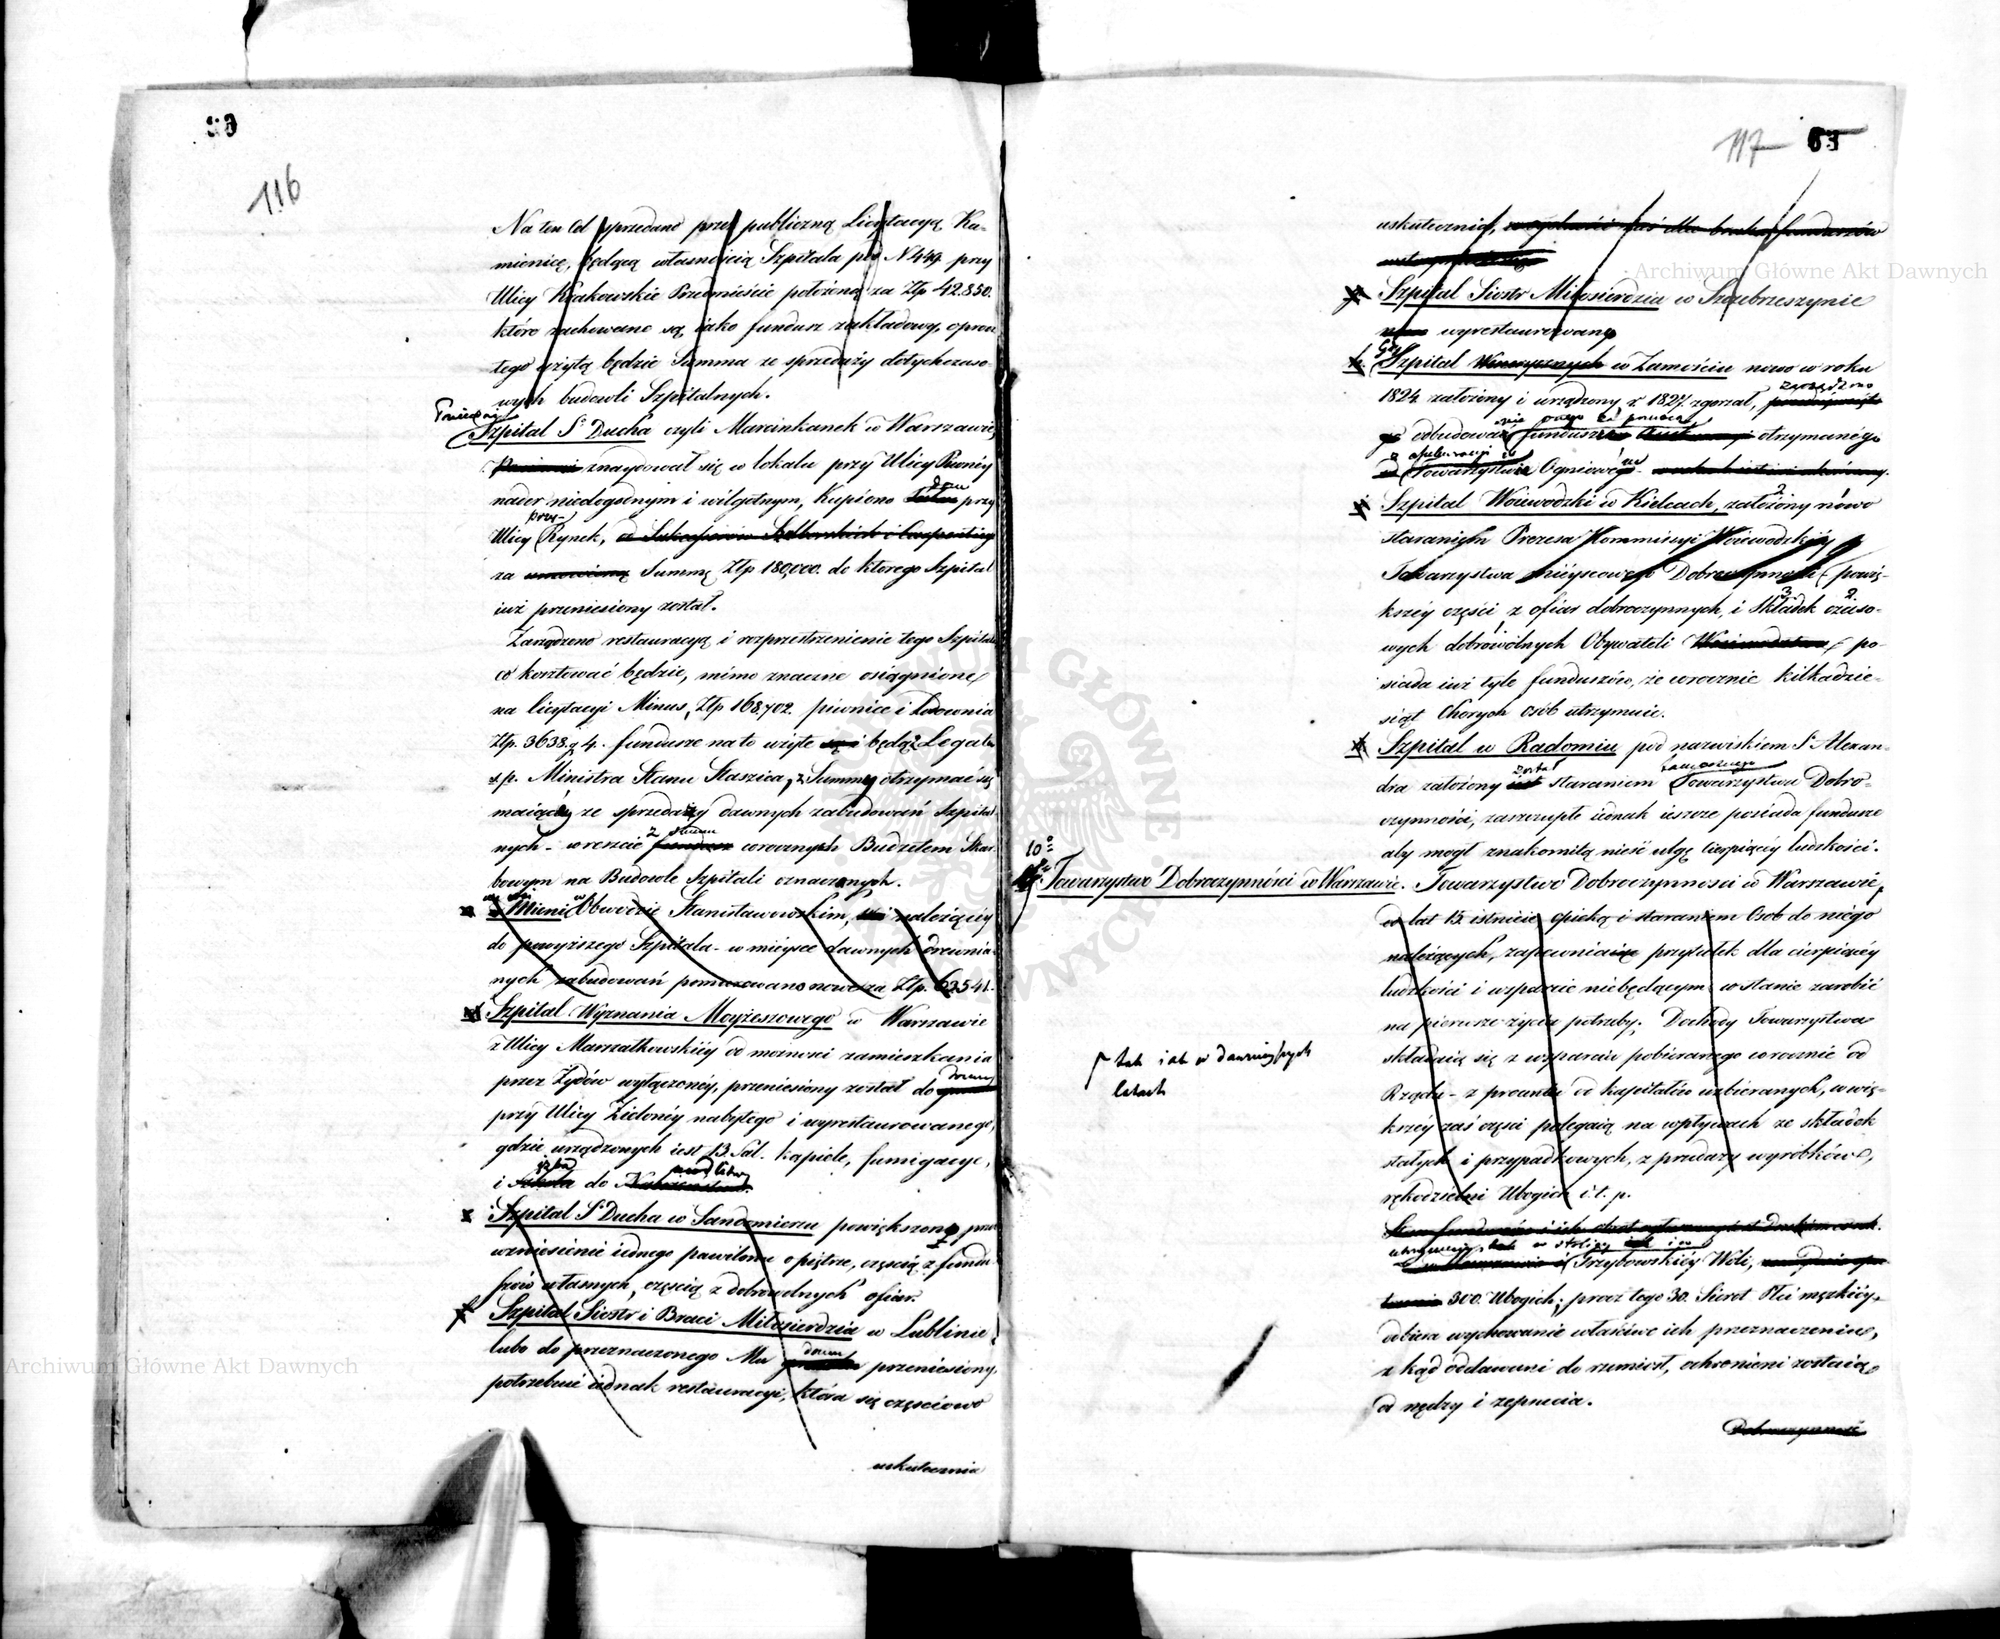 116
Na ten cel sprzedano przez publiczną Licytacyą Ka-
mienicę, będącą własnością Szpitala pod N 449 przy
Ulicy Krakowskie Przedmieście położoną za Złp 42.850.
które zachowane są jako fundusz zakładowy, oprócz
tego użytą będzie Summa ze sprzedaży dotychczaso-
wych budowli Szpitalnych.
Szpital S. Ducha czyli Marcinkanek w Warszawie,
znaydował się w lokalu przy Ulicy Piwnéy
nader niedogodnym i wilgotnym, Kupiono dom przy
Ulicy przy-Rynek,
za Summę Złp 180,000. do którego Szpital
iuż przeniesiony został.
Zarządzono restauracyą i rozprzestrzenienie tego Szpitala
co kosztować będzie, mimo znaczne osiągnione
na licytacyi Minus, Złp 168,702. piwnice i Lodownia
Złp. 3638 g 4. fundusze na to użyte będą z Legatu
s.p. Ministra Stanu Staszica, z Summy otrzymać się
maiącéy ze sprzedaży dawnych zabudowań Szpital-
nych - wreszcie z summ corocznych Budżetem Skar-
bowym na Budowle Szpitali oznaczonych.
w Mieni w Obwodzie Stanisławowskim, należącéy
do powyższego Szpitala - w mieysce dawnych drewnia-
nych zabudowań pomurowano nowe za Złp.
Szpital Wyznania Moyżeszowego w Warszawie
z Ulicy Marszałkowskiéy od możności zamieszkania
przez Żydów wyłączonéy, przeniesiony został do domu
przy Ulicy Zielonéy nabytego i wyrestaurowanego,
gdzie urządzonych iest 13 Sal. Kąpiele, fumigacye,
i izba do modlitwy
Szpital S. Ducha w Sandomierzu powiększony przez
wzniesienie iednego pawilonu o piętrze, częścią z fundu-
szów własnych, częścią z dobrowolnych ofiar.
Szpital Siostr i Braci Miłosierdzia w Lublinie
lubo do przeznaczonego Mu domu przeniesiony,
potrzebuie iednak restauracyi, która się częściowo
uskutecznia
117
uskutecznia,
Szpital Siostr Miłosierdzia w Szczebrzeszynie
wyrestaurowany
Szpital w Zamościu nowo w roku
1824 założony i urządzony z 1827 zgorzał, zarządzono
odbudowanie onego za pomocą funduszu otrzymanego
z asekuracyi w Towarzystwie Ogniowego
Szpital Woiewódzki w Kielcach, założony nowo
staraniem Prezesa Kommissyi Woiewódzkiéy
Towarzystwa mieyscowego Dobroczynności powię-
kszéy części z ofiar dobroczynnych, i Składek czaso-
wych dobrowolnych Obywateli po-
siada iuż tyle funduszów, że corocznie kilkadzie-
siąt Chorych osób utrzymuie.
Szpital w Radomiu pod nazwiskiem S Alexan-
dra założony został staraniem tamecznego Towarzystwa Dobro-
czynności, zaszczupłe iednak ieszcze posiada fundusze
aby mógł znakomitą nieść ulgę cierpiącéy ludzkości.
10o
Towarzystwo Dobroczynności w Warszawie. Towarzystwo Dobroczynności w Warszawie,
od lat 15. istnieie opieką i staraniem Osób do niego
należących, zapewniaiąc przytułek dla cierpiącéy
ludzkości i wsparcie niebędącym w stanie zarobić
na pierwsze życia potrzeby. Dochody Towarzystwa
tak iak w dawnieyszych
latach
składaią się z wsparcia pobieranego corocznie od
Rządu - z procentu od kapitałów uzbieranych, w wię-
kszéy zaś części polegaią na wpływach ze składek
stałych i przypadkowych, z przedaży wyrobków,
rękodzielni Ubogich i.t.p.
utrzymuie tak w stolicy iak i w Grzybowskiéy Woli,
300. Ubogich; przez tego 30. Sierot Płci męzkiéy
odbiera wychowanie właściwe ich przeznaczeniu,
z kąd oddawani do rzemiosł, ochronieni zostaią
od nędzy i zepsucia.
Archiwum Główne Akt Dawnych
Archiwum Główne Akt Dawnych